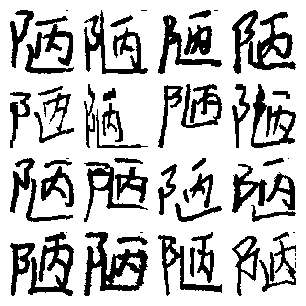 陋陋陋陋
陋陋陋陋
陋陋陋陋
陋陋陋陋